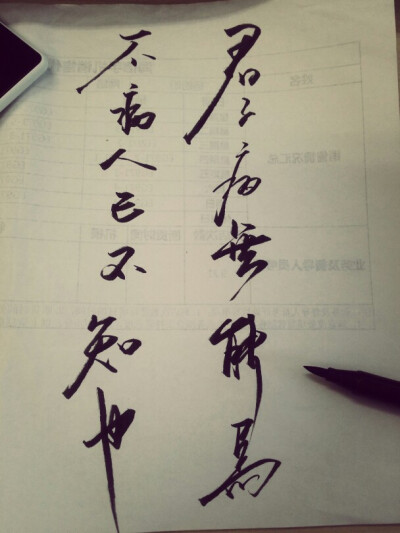 君子病無能焉
不病人己不知也